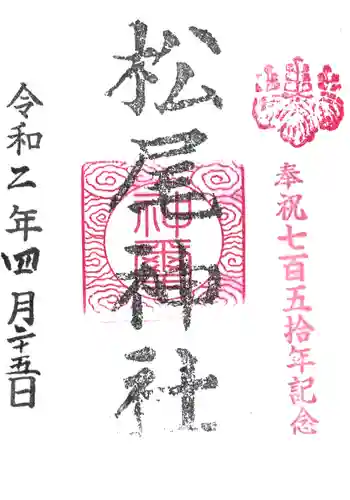 奉祝七百五拾年記念
松尾神社
神璽
令和二年四月二十五日